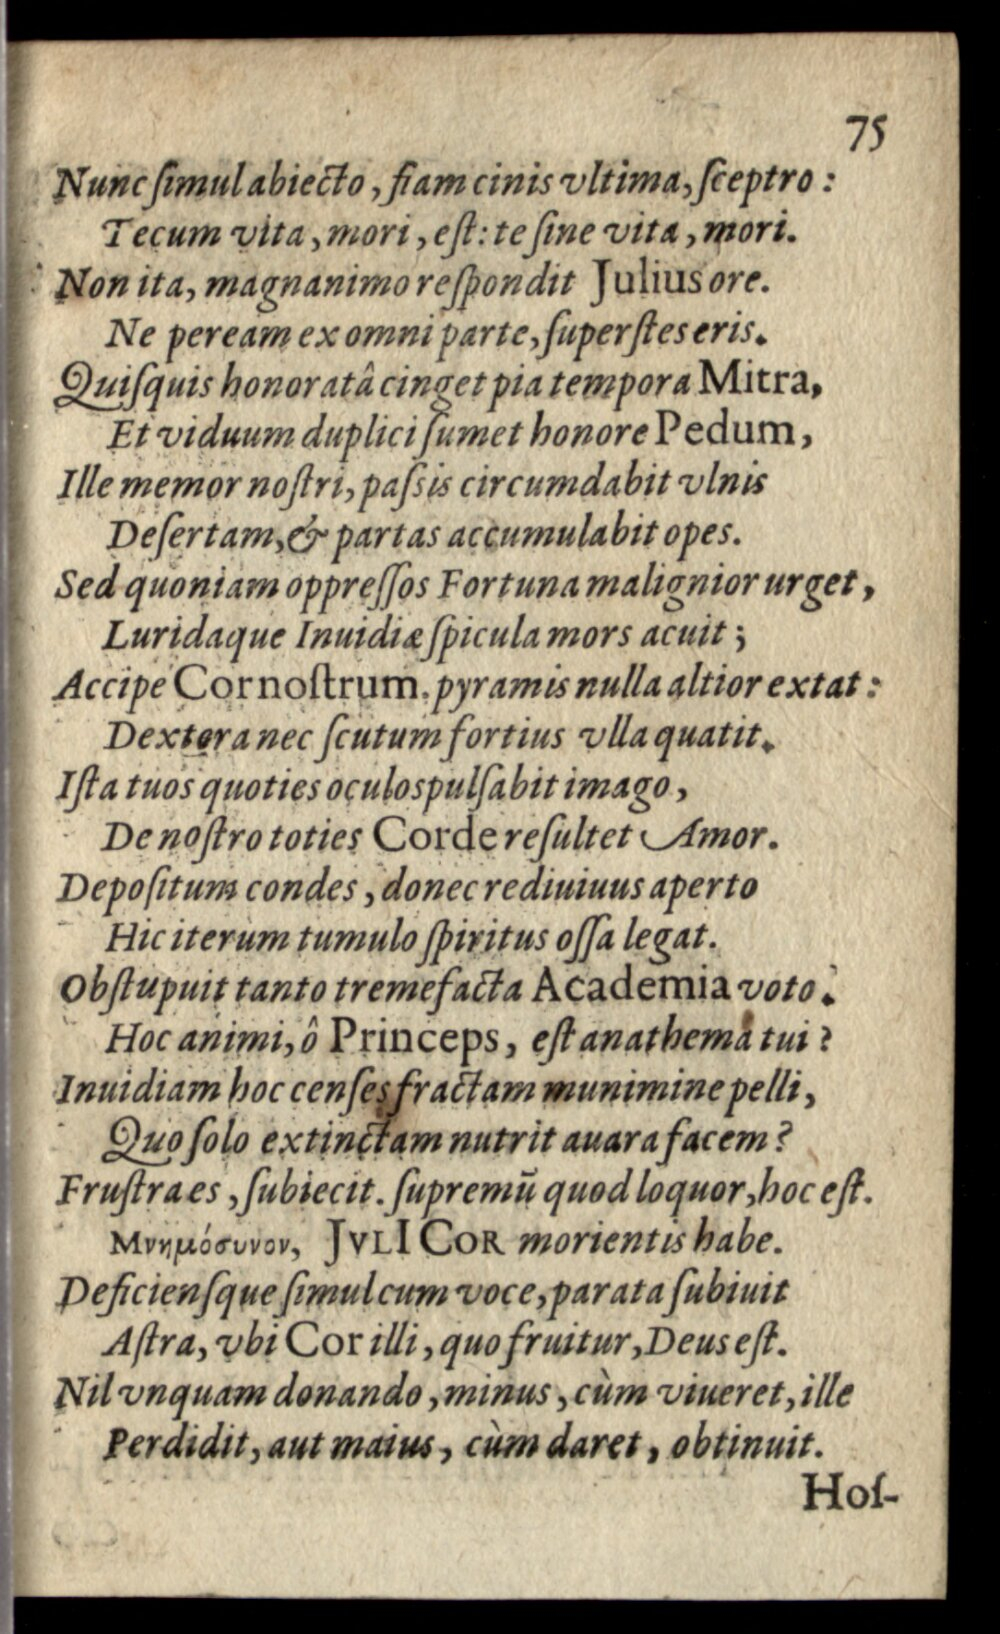 75
Nunc ſimul abiecto, fiam cinis vltima, ſceptro:
Tecum vita, mori, eſt: te ſine vita, mori.
Non ita, magnanimo reſpondit Julius ore.
Ne peream ex omni parte, ſuperſtes eris.
Quiſquis honoratâ cinget pia tempora Mitra,
Et viduum duplici ſumet honore Pedum,
Ille memor noſtri, paſsis circumdabit vlnis
Deſertam, & partas accumulabit opes.
Sed quoniam oppreſſos Fortuna malignior urget,
Luridaque Inuidiæ ſpicula mors acuit;
Accipe Cor noſtrum. pyramis nulla altior extat:
Dextera nec ſcutum fortius vlla quatit.
Iſta tuos quoties oculos pulſabit imago,
De noſtro toties Corde reſultet Amor.
Depoſitum condes, donec rediuiuus aperto
Hic iterum tumulo ſpiritus oſſa legat.
Obſtupuit tanto tremefacta Academia voto.
Hoc animi, ô Princeps, eſt anathema tui?
Inuidiam hoc censes fractam munimine pelli,
Quo ſolo extinctam nutrit auara facem?
Fruſtra es, ſubiecit. ſupremū quod loquor, hoc eſt.
Μνημόσυνον, JVLI COR morientis habe.
Deficienſque ſimul cum voce, parata ſubiuit
Aſtra, vbi Cor illi, quo fruitur, Deus eſt.
Nil vnquam donando, minus, cùm viueret, ille
Perdidit, aut maius, cùm daret, obtinuit.
Hoſ-